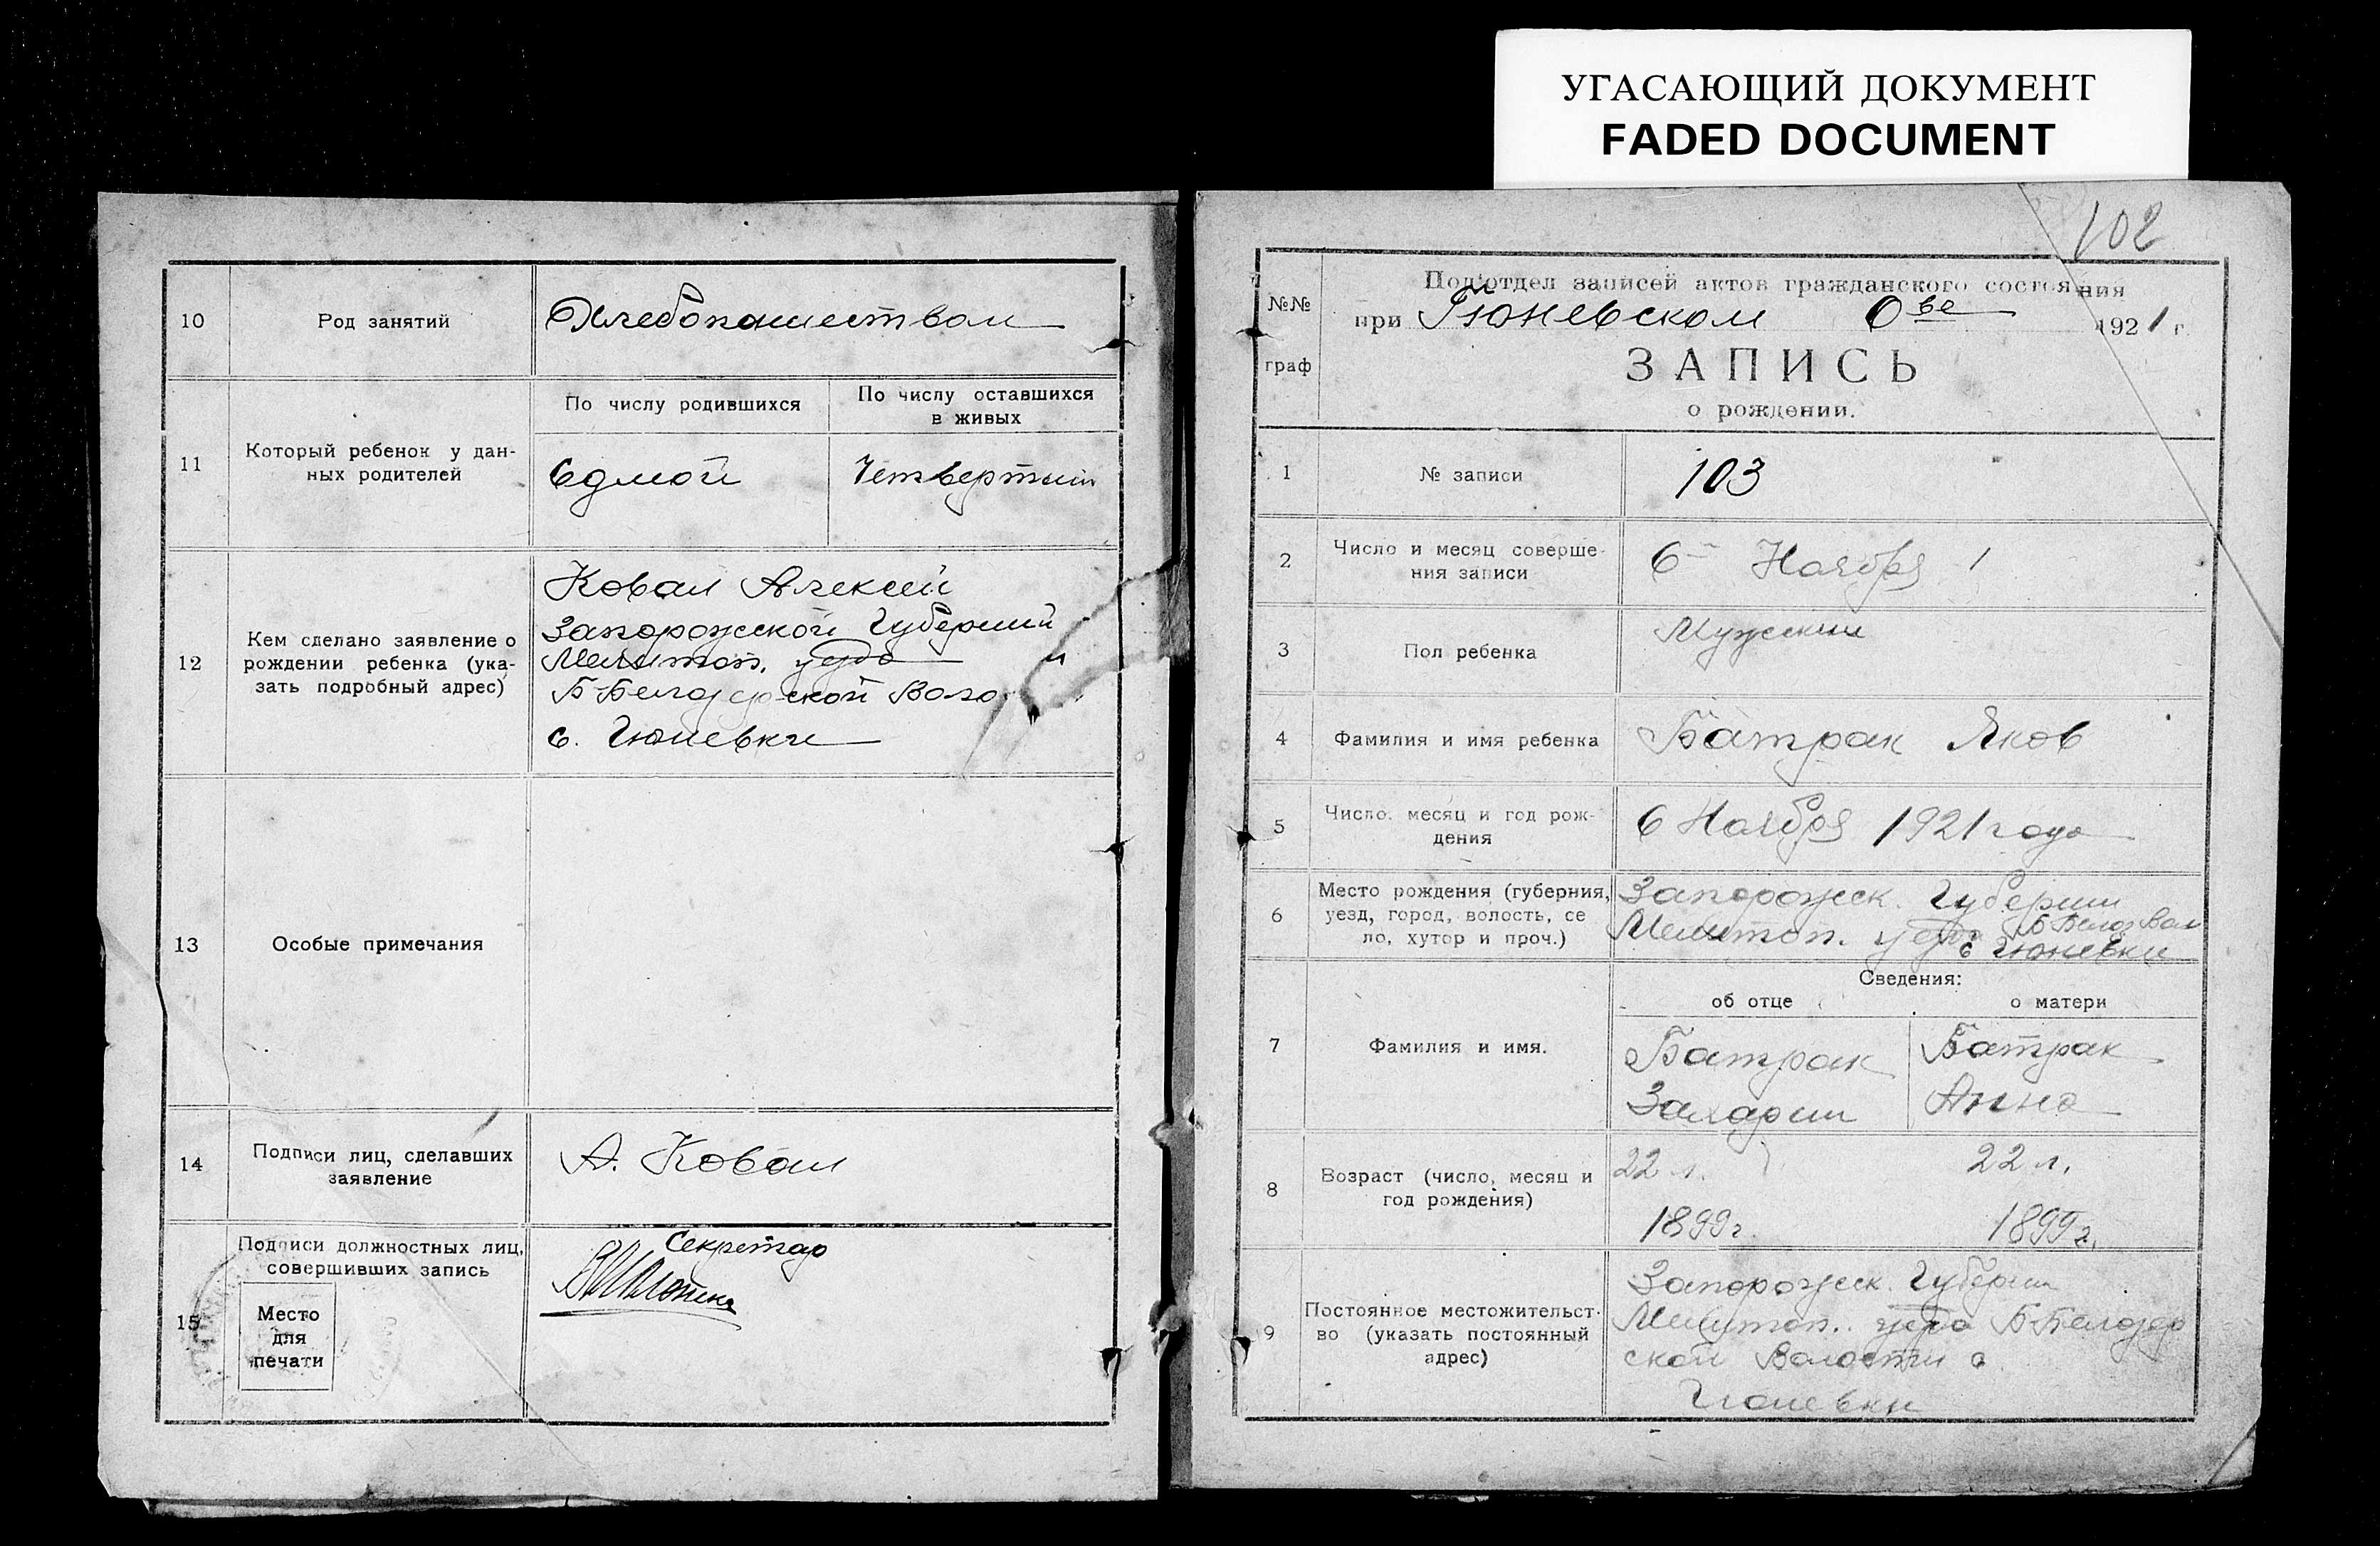 УГАСАЮЩИЙ ДОКУМЕНТ
FADED DOCUMENT
10
Род занятий
Хлебопашеством
11
Который ребенок у дан-
ных родителей
По числу родившихся
По числу оставшихся
в живых
Седмой
Четвертый
12
Кем сделано заявление о
рождении ребенка (ука-
зать подробный адрес)
Ковал Алексей
Запорожской Губернии
Мелитоп. уезда
Б-Белозерской Воло
с. Гюневки
13
Особые примечания
14
Подписи лиц, сделавших
заявление
А. Ковал
15
Подписи должностных лиц,
совершивших запись
Место
для
печати
Секретар
102
№№
граф
Подотдел записей актов гражданского состояния
при Гюневском О-ве 1921 г.
ЗАПИСЬ
о рождении.
1
№ записи
103
2
Число и месяц соверше-
ния записи
6 Ноября
3
Пол ребенка
Мужский
4
Фамилия и имя ребенка
Батрак Яков
5
Число, месяц и год рож-
дения
6 Ноября 1921 года
6
Место рождения (губерния,
уезд, город, волость, се
ло, хутор и проч.)
Запорожск. Губернии
Мелитоп. уезда Б Белоз Вол
с Гюневки
Сведения:
об отце
о матери
7
Фамилия и имя.
Батрак
Захарий
Батрак
Анна
8
Возраст (число, месяц и
год рождения)
22 л.
1899 г.
22 л.
1899 г.
9
Постоянное местожительст-
во (указать постоянный
адрес)
Запорожск. Губерни
Мелитоп. уезда Б-Белозер
ской Волости с.
Гюневки